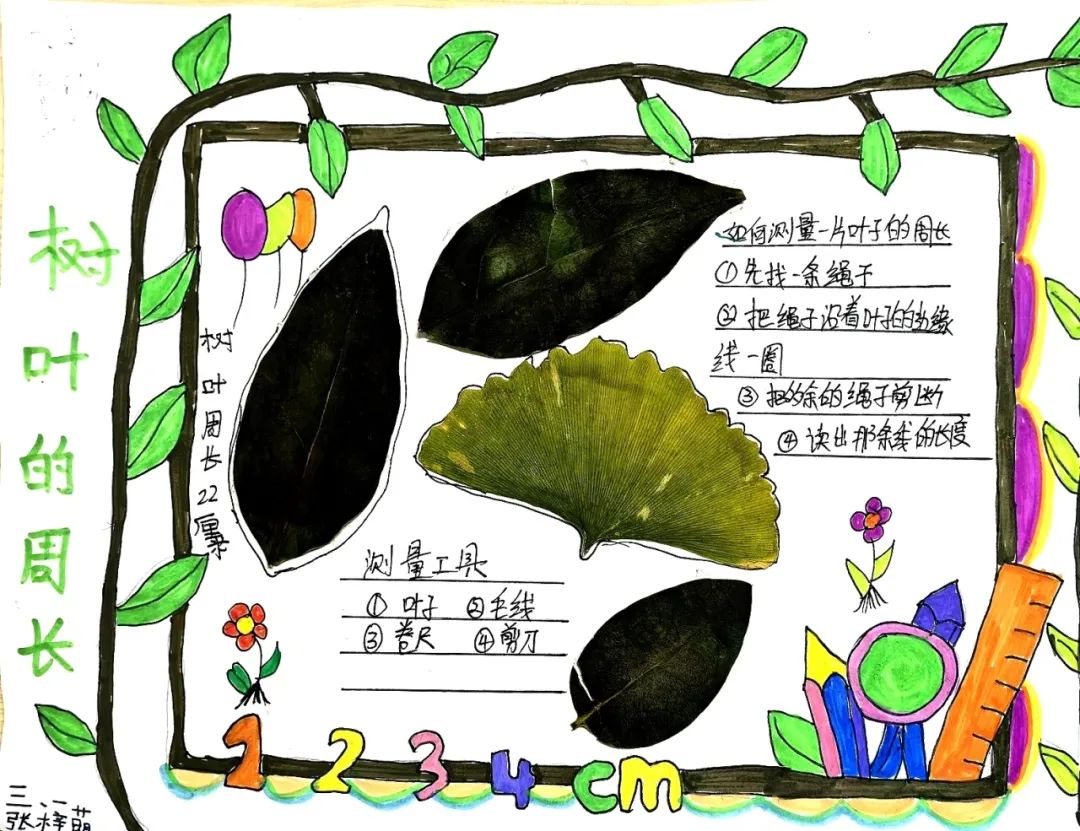 树叶的周长
树叶周长22厘米
如何测量一片叶子的周长
①先找一条绳子
②把绳子沿着叶子的边缘
线一圈
③把多余的绳子剪断
④读出那条线的长度
测量工具
①叶子 ②毛线
③卷尺 ④剪刀
1 2 3 4 cm
三、二
张梓萌